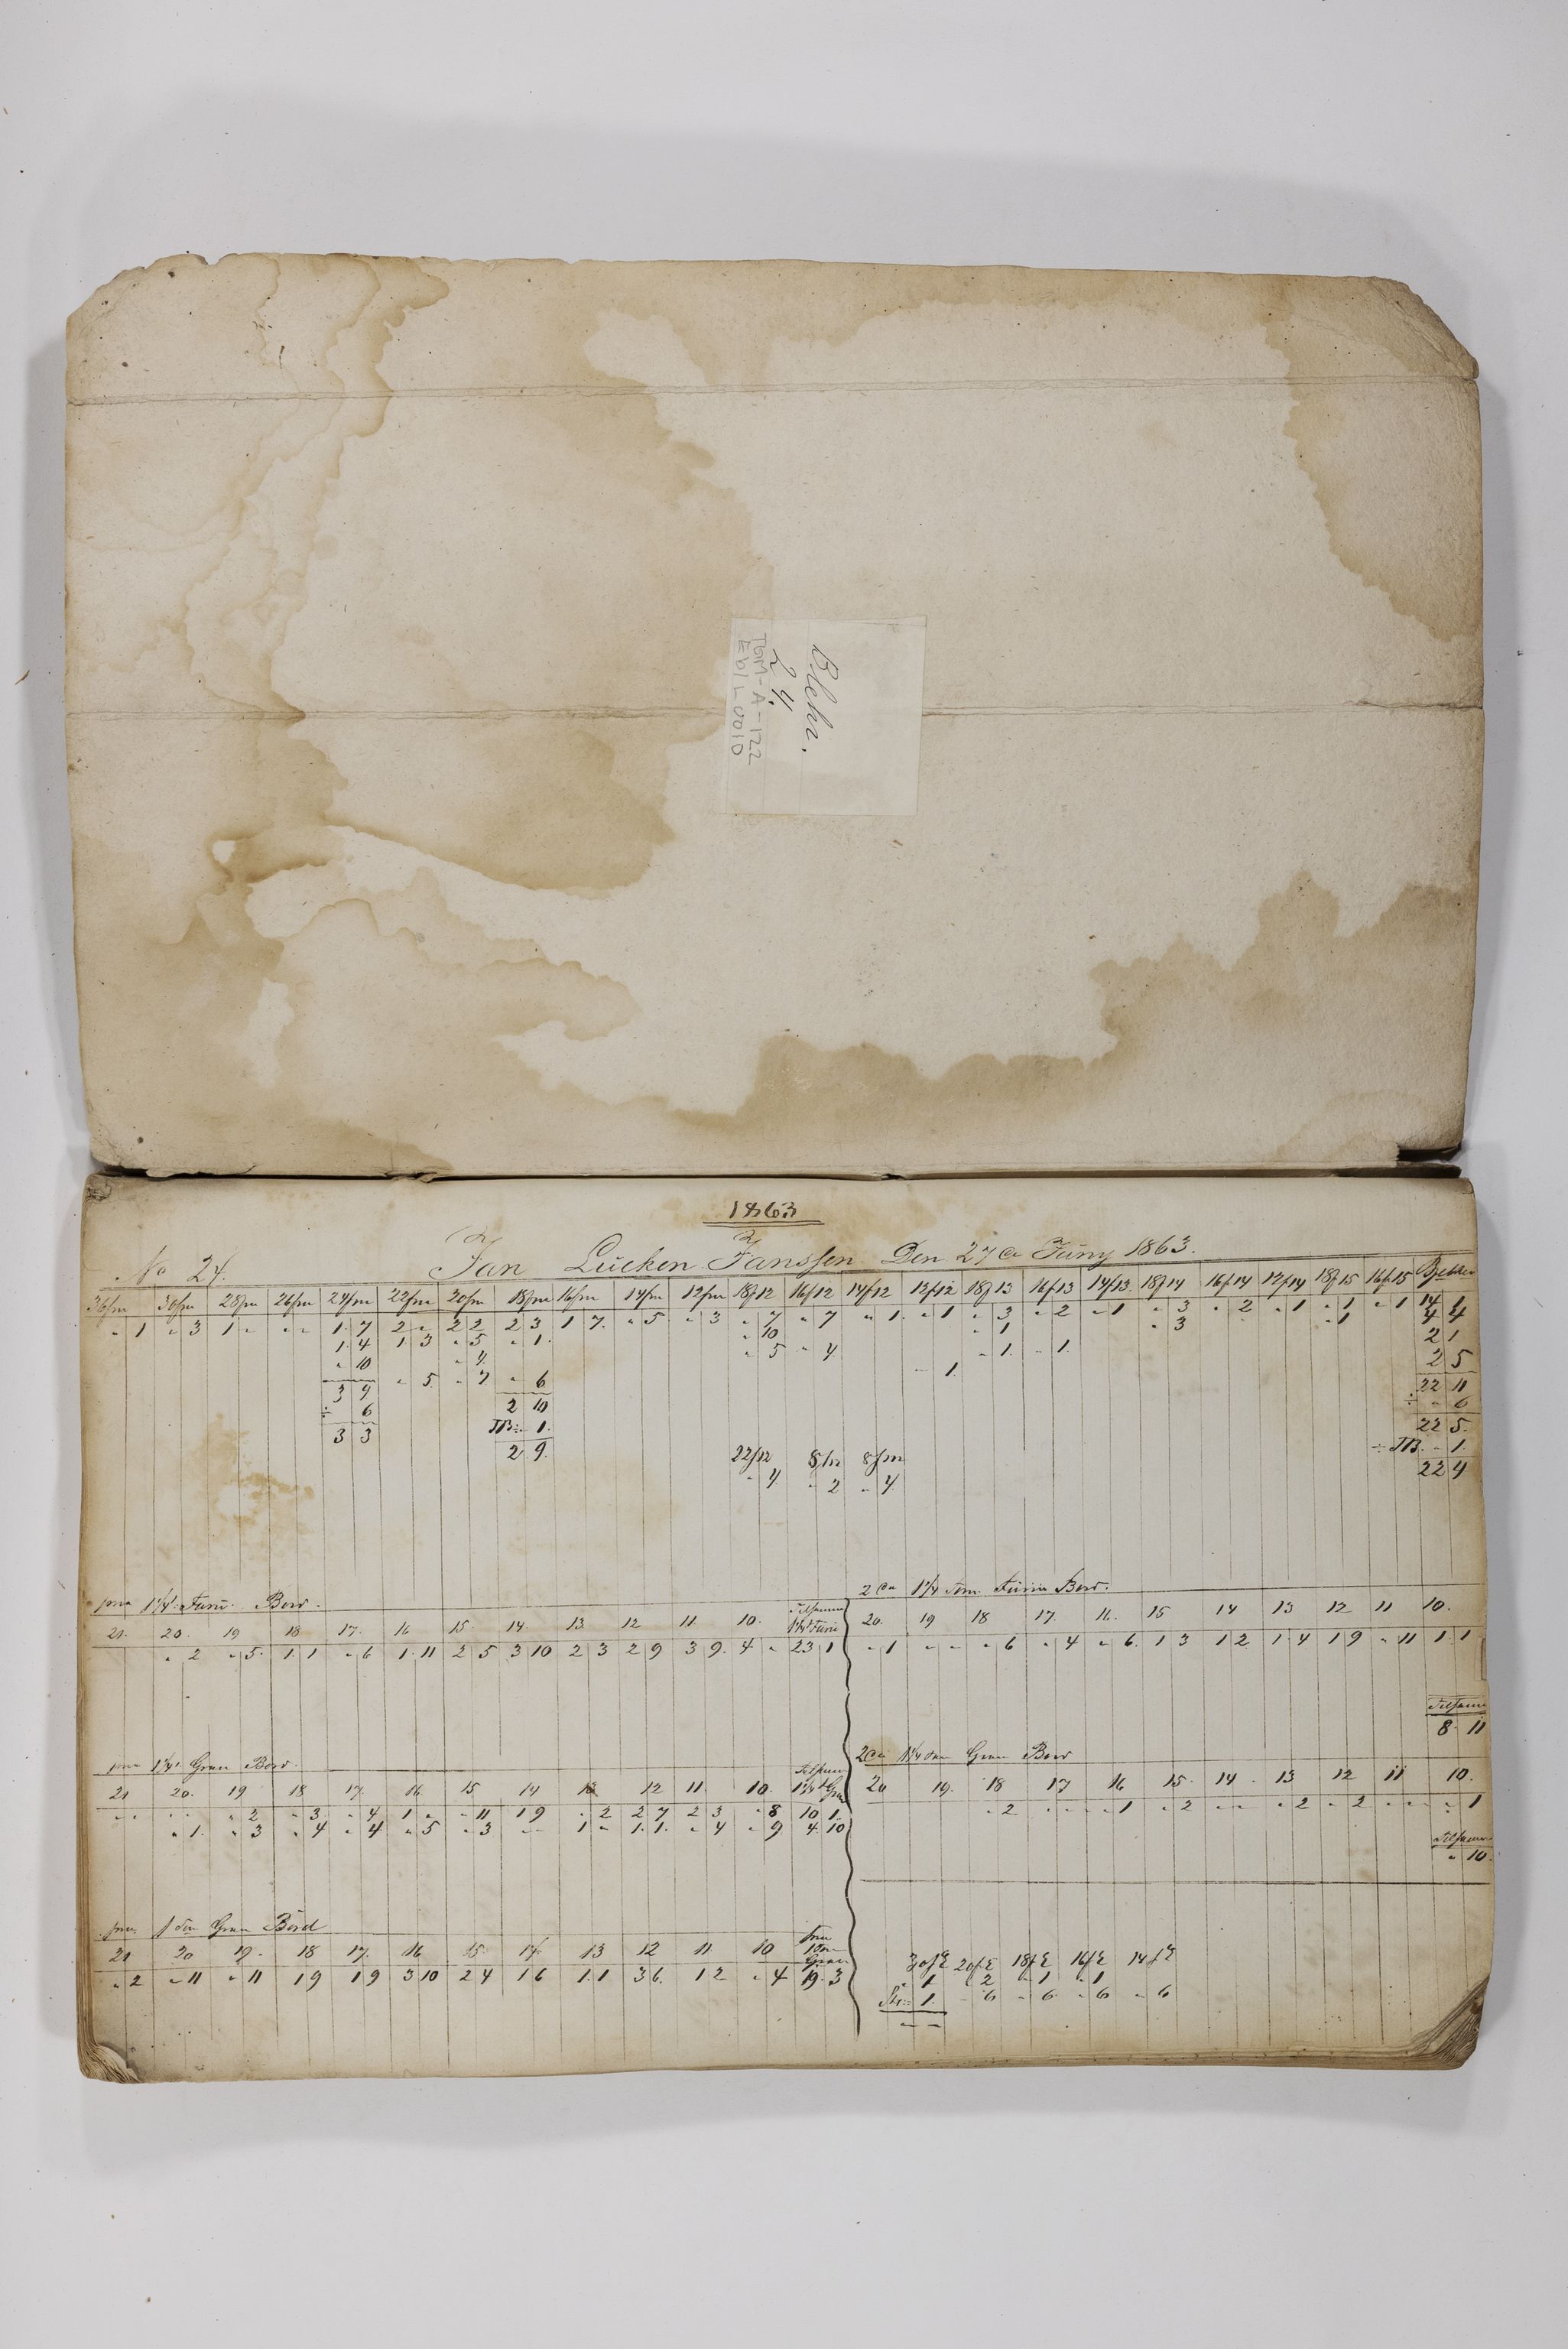 Blehr.
24.
TGM-A-122
Eb1L0010
1863
No 24. Jan Lücken Janssen Den 27de Juny 1863.
36fm 30fm 28fm 26fm 24fm 22fm 20fm 18fm 16fm 14fm 12fm 18f12 16f12 14f12 12f12 18f13 16f13 14f13 18f14 16f14 12f14 18f15 16f15 Bjelker
" 1 " 3 1 " " " 1 7 2 " 2 2 2 3 1 7 " 5 " 3 " 7 " 7 " 1 " 1 " 3 " 2 " 1 " 3 " 2 " 1 " 1 " 1 14 1
1 4 1 3 " 5 " 1 " 10 " 1 " 3 " 1 4 4
" 10 " 4 " 5 " 4 " 1 " 1 2 1
" 5 " 7 " 6 " 1 2 5
3 9 2 10 22 11
÷ 6 TB ÷ 1 ÷ " 6
3 3 2 9 22 5
÷ TB " 1
22/12 8/12 8fm 22 4
" 4 " 2 " 4
pma 1¼ Furu Bord.
21 20 19 18 17 16 15 14 13 12 11 10 Tilsammen 1¼ Furu
" 2 " 5 1 1 " 6 1 11 2 5 3 10 2 3 2 9 3 9 4 " 23 1
2da 1¼ tom Furu Bord.
20 19 18 17 16 15 14 13 12 11 10
" 1 " " " 6 " 4 " 6 1 3 1 2 1 4 1 9 " 11 1 1
Tilsammen
8 11
pma 1¼ Gran Bord.
21 20 19 18 17 16 15 14 13 12 11 10 Tilsammen 1¼ Gran
" " " " " 2 " 3 " 4 1 " " 11 1 9 " 2 2 7 2 3 " 8 10 1
" 1 " 3 " 4 " 4 " 5 " 3 " " 1 " 1 1 " 4 " 9 4 10
2da 1¼ tom Gran Bord
20 19 18 17 16 15 14 13 12 11 10
" 2 " " " 1 " 2 " " " 2 " 2 " " " 1
Tilsammen
" 10
pma 1 tom Gran Bord
21 20 19 18 17 16 15 14 13 12 11 10 pma 1 tom Gran
" 2 " 11 " 11 1 9 1 9 3 10 2 4 1 6 1 1 3 6 1 2 " 4 19 3
30fE 20fE 18fE 16fE 14fE
" 1 " 2 " 1 " 1
1 " 6 " 6 " 6 " 6
" "